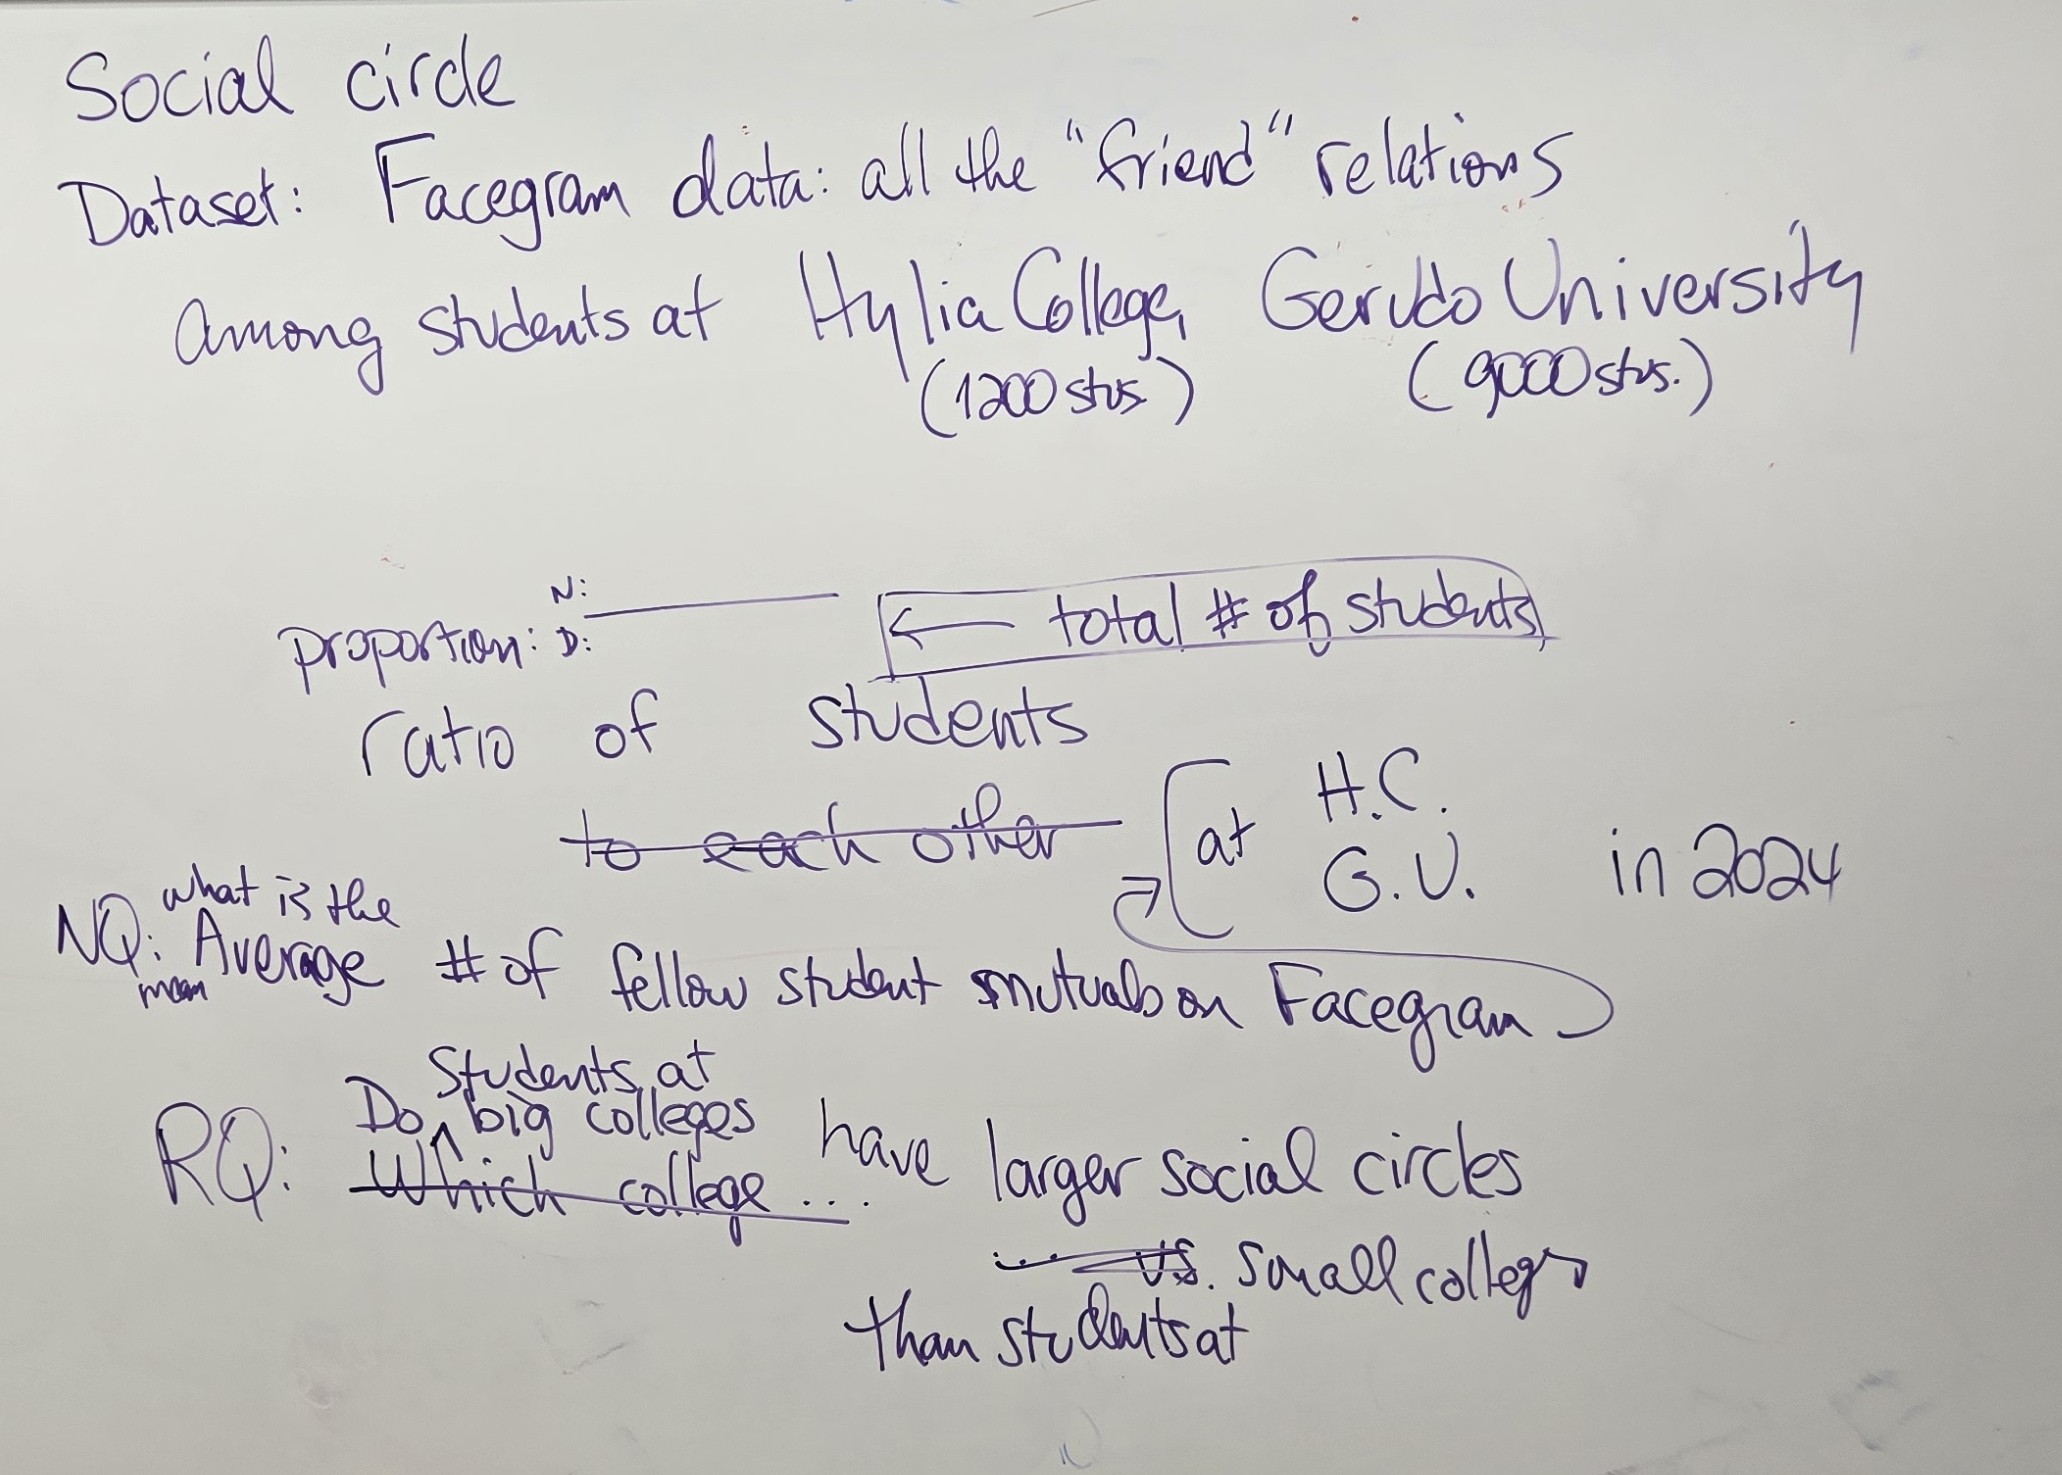 Social circle
Dataset: Facegram data: all the "friend" relations
among students at Hylia College, Gerudo University
(1200 stus.) (9000 stus.)
N:
proportion: D:
← total # of students
ratio of students
to each other
at H.C.
G.U. in 2024
what is the
NQ: Average # of fellow student mutuals on Facegram
mean
Students at
Do ^ big colleges have larger social circles
RQ: Which college ...
... vs. small colleges
than students at